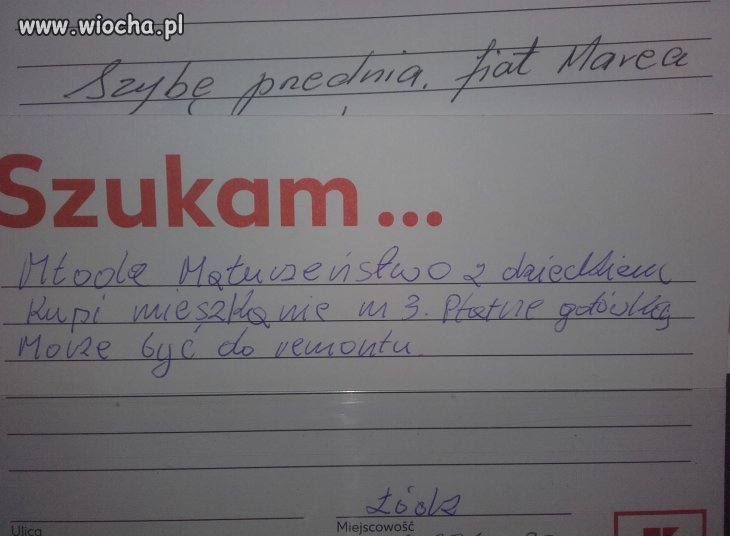 www.wiocha.pl
Szybę prednia. fiat Marea
Szukam...
Młode Mąturzeństwo z dzieckiem
Kupi mieszkąnie m 3. Płatne gotówką
Morze być do remontu.
Łódz
Ulica
Miejscowość